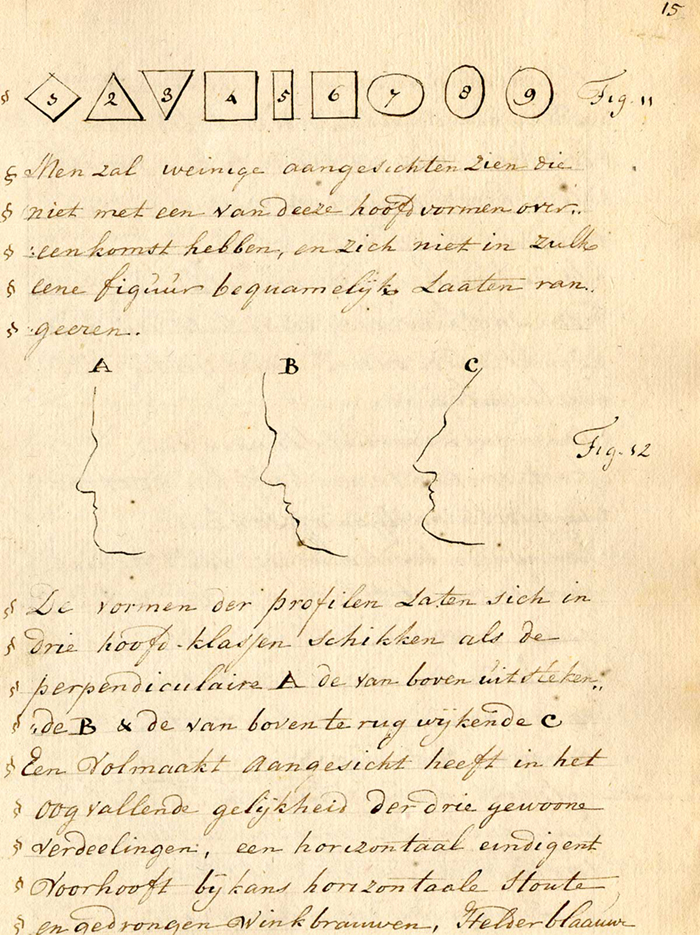 15
§ 1 2 3 4 5 6 7 8 9 Fig. 11
§ Men zal weinige aangesichten zien die
§ niet met een van deeze hoofdvormen over„
§ „eenkomst hebben, en zich niet in zulk
§ eene figuur bequamelijk Laaten ran„
§ „geeren.
A B C
Fig. 12
§ De vormen der profilen Laten sich in
§ drie hoofd-klassen schikken als de
§ perpendiculaire A de van boven uitsteken„
§ „de B & de van boven te rug wijkende C
§ Een Volmaakt Aangesicht heeft in het
§ oogvallende gelijkheid der drie gewoone
§ verdeelingen, een horizontaal eindigent
§ Voorhooft bijkans horizontaale Stoute
§ en gedrongen Winkbrauwen, Helder blaauwe